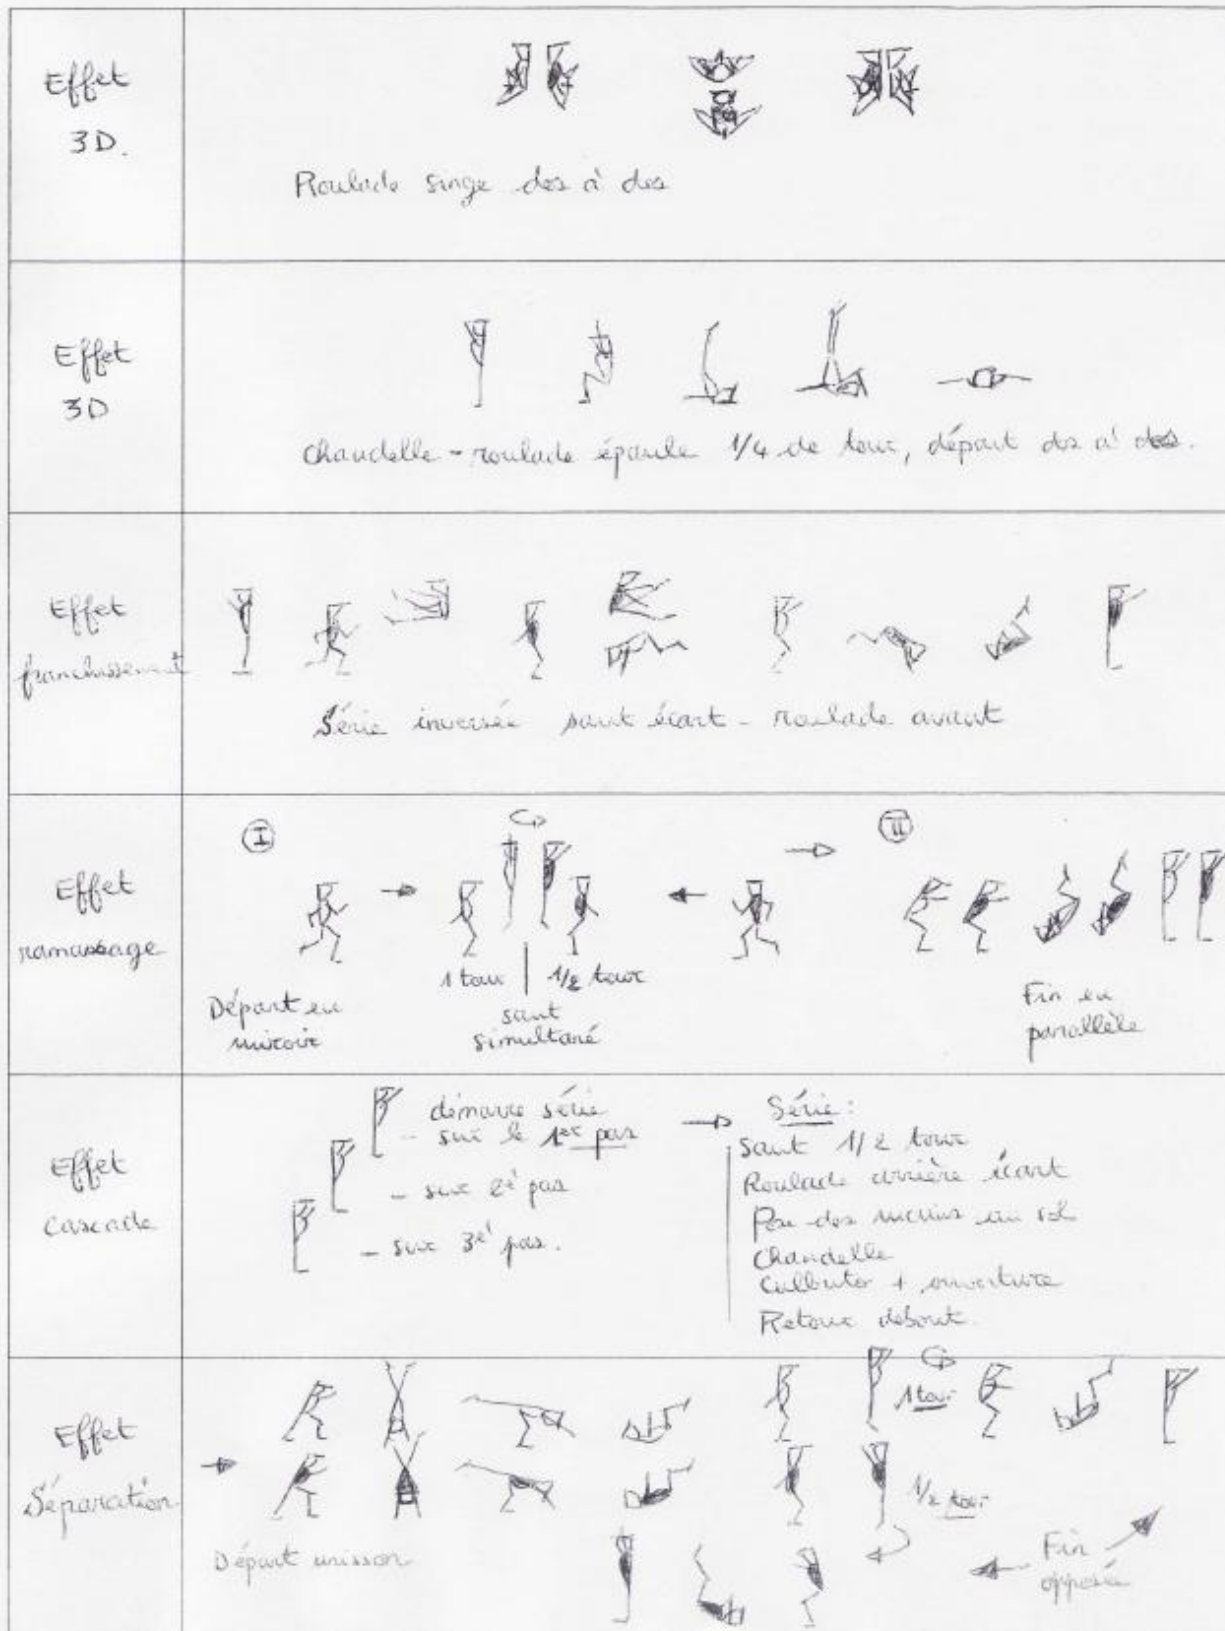 Effet
3D.
Roulade singe dos à dos
Effet
3D
Chandelle - roulade épaule 1/4 de tour, départ dos à dos.
Effet
franchissement
Série inversée saut écart - roulade avant
Effet
ramassage
I
II
1 tour | 1/2 tour
saut
simultané
Départ en
miroir
Fin en
parallèle
Effet
Cascade
démarre série
- sur le 1er pas
- sur 2è pas
- sur 3è pas.
Série:
Saut 1/2 tour
Roulade arrière écart
Pose des mains au sol
Chandelle
Culbuter + ouverture
Retour debout.
Effet
Séparation
1 tour
1/2 tour
Départ unisson
Fin
opposée